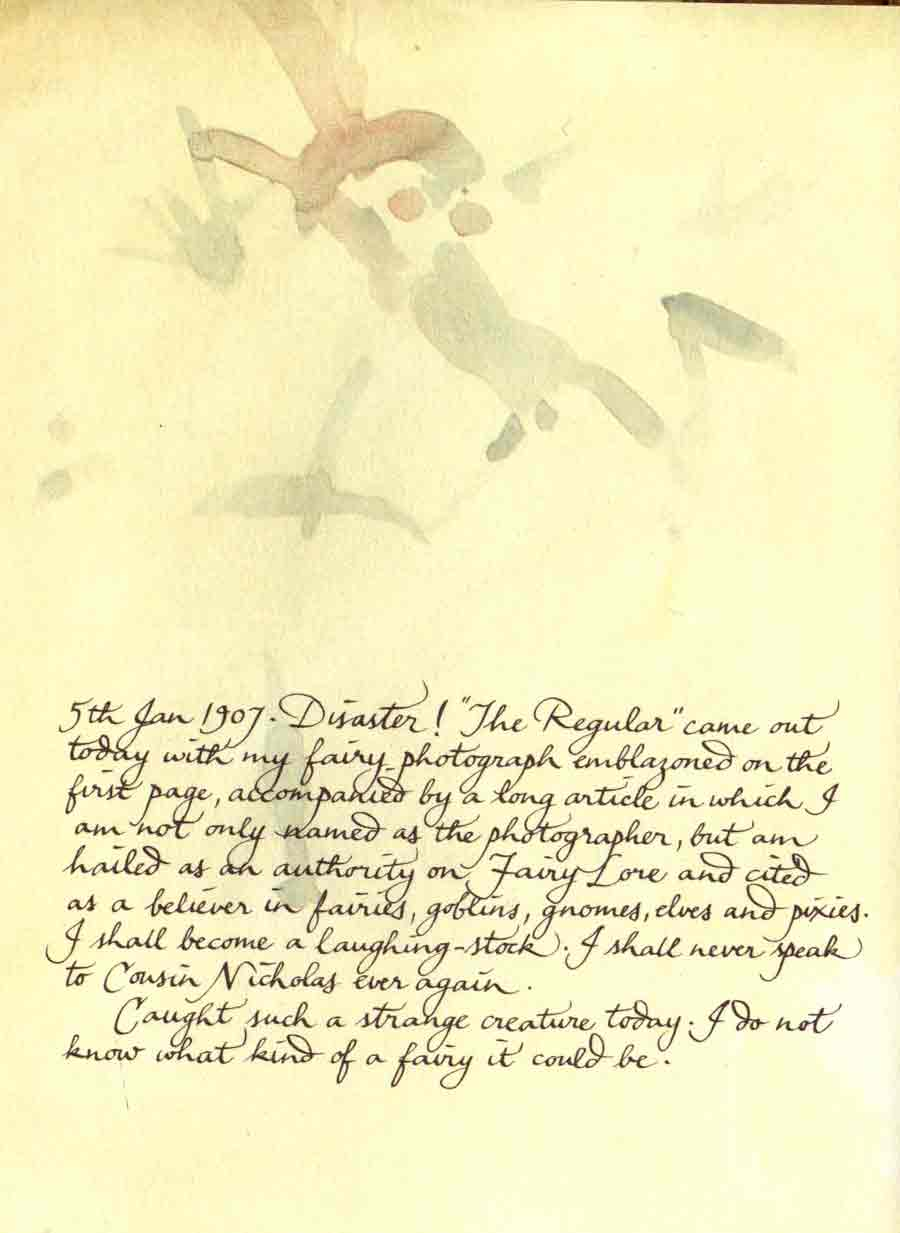 5th Jan 1907. Disaster! "The Regular" came out
today with my fairy photograph emblazoned on the
first page, accompanied by a long article in which I
am not only named as the photographer, but am
hailed as an authority on Fairy Lore and cited
as a believer in fairies, goblins, gnomes, elves and pixies.
I shall become a laughing-stock. I shall never speak
to Cousin Nicholas ever again.
Caught such a strange creature today. I do not
know what kind of a fairy it could be.